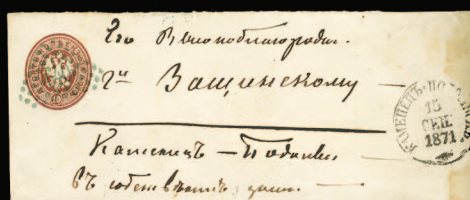 Его Высокоблагородію
Гну Защинскому
Каменецъ – Подольскъ
въ собственномъ домѣ
КАМЕНЕЦЪ-ПОДОЛЬСК
15
СЕН.
1871
10